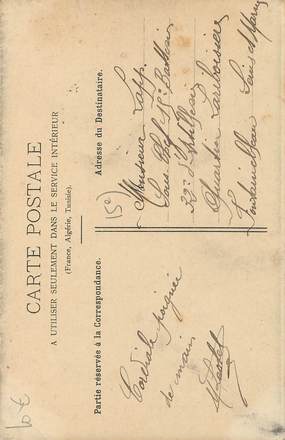 CARTE POSTALE
A UTILISER SEULEMENT DANS LE SERVICE INTÉRIEUR
(France, Algérie, Tunisie).
Partie réservée à la Correspondance.
Adresse du Destinataire.
15€
Monsieur
Sous Chef
32e d'Artillerie
Quartier Lariboisière
Fontainebleau Seine et Marne
Cordiale poignée
de main
10 €